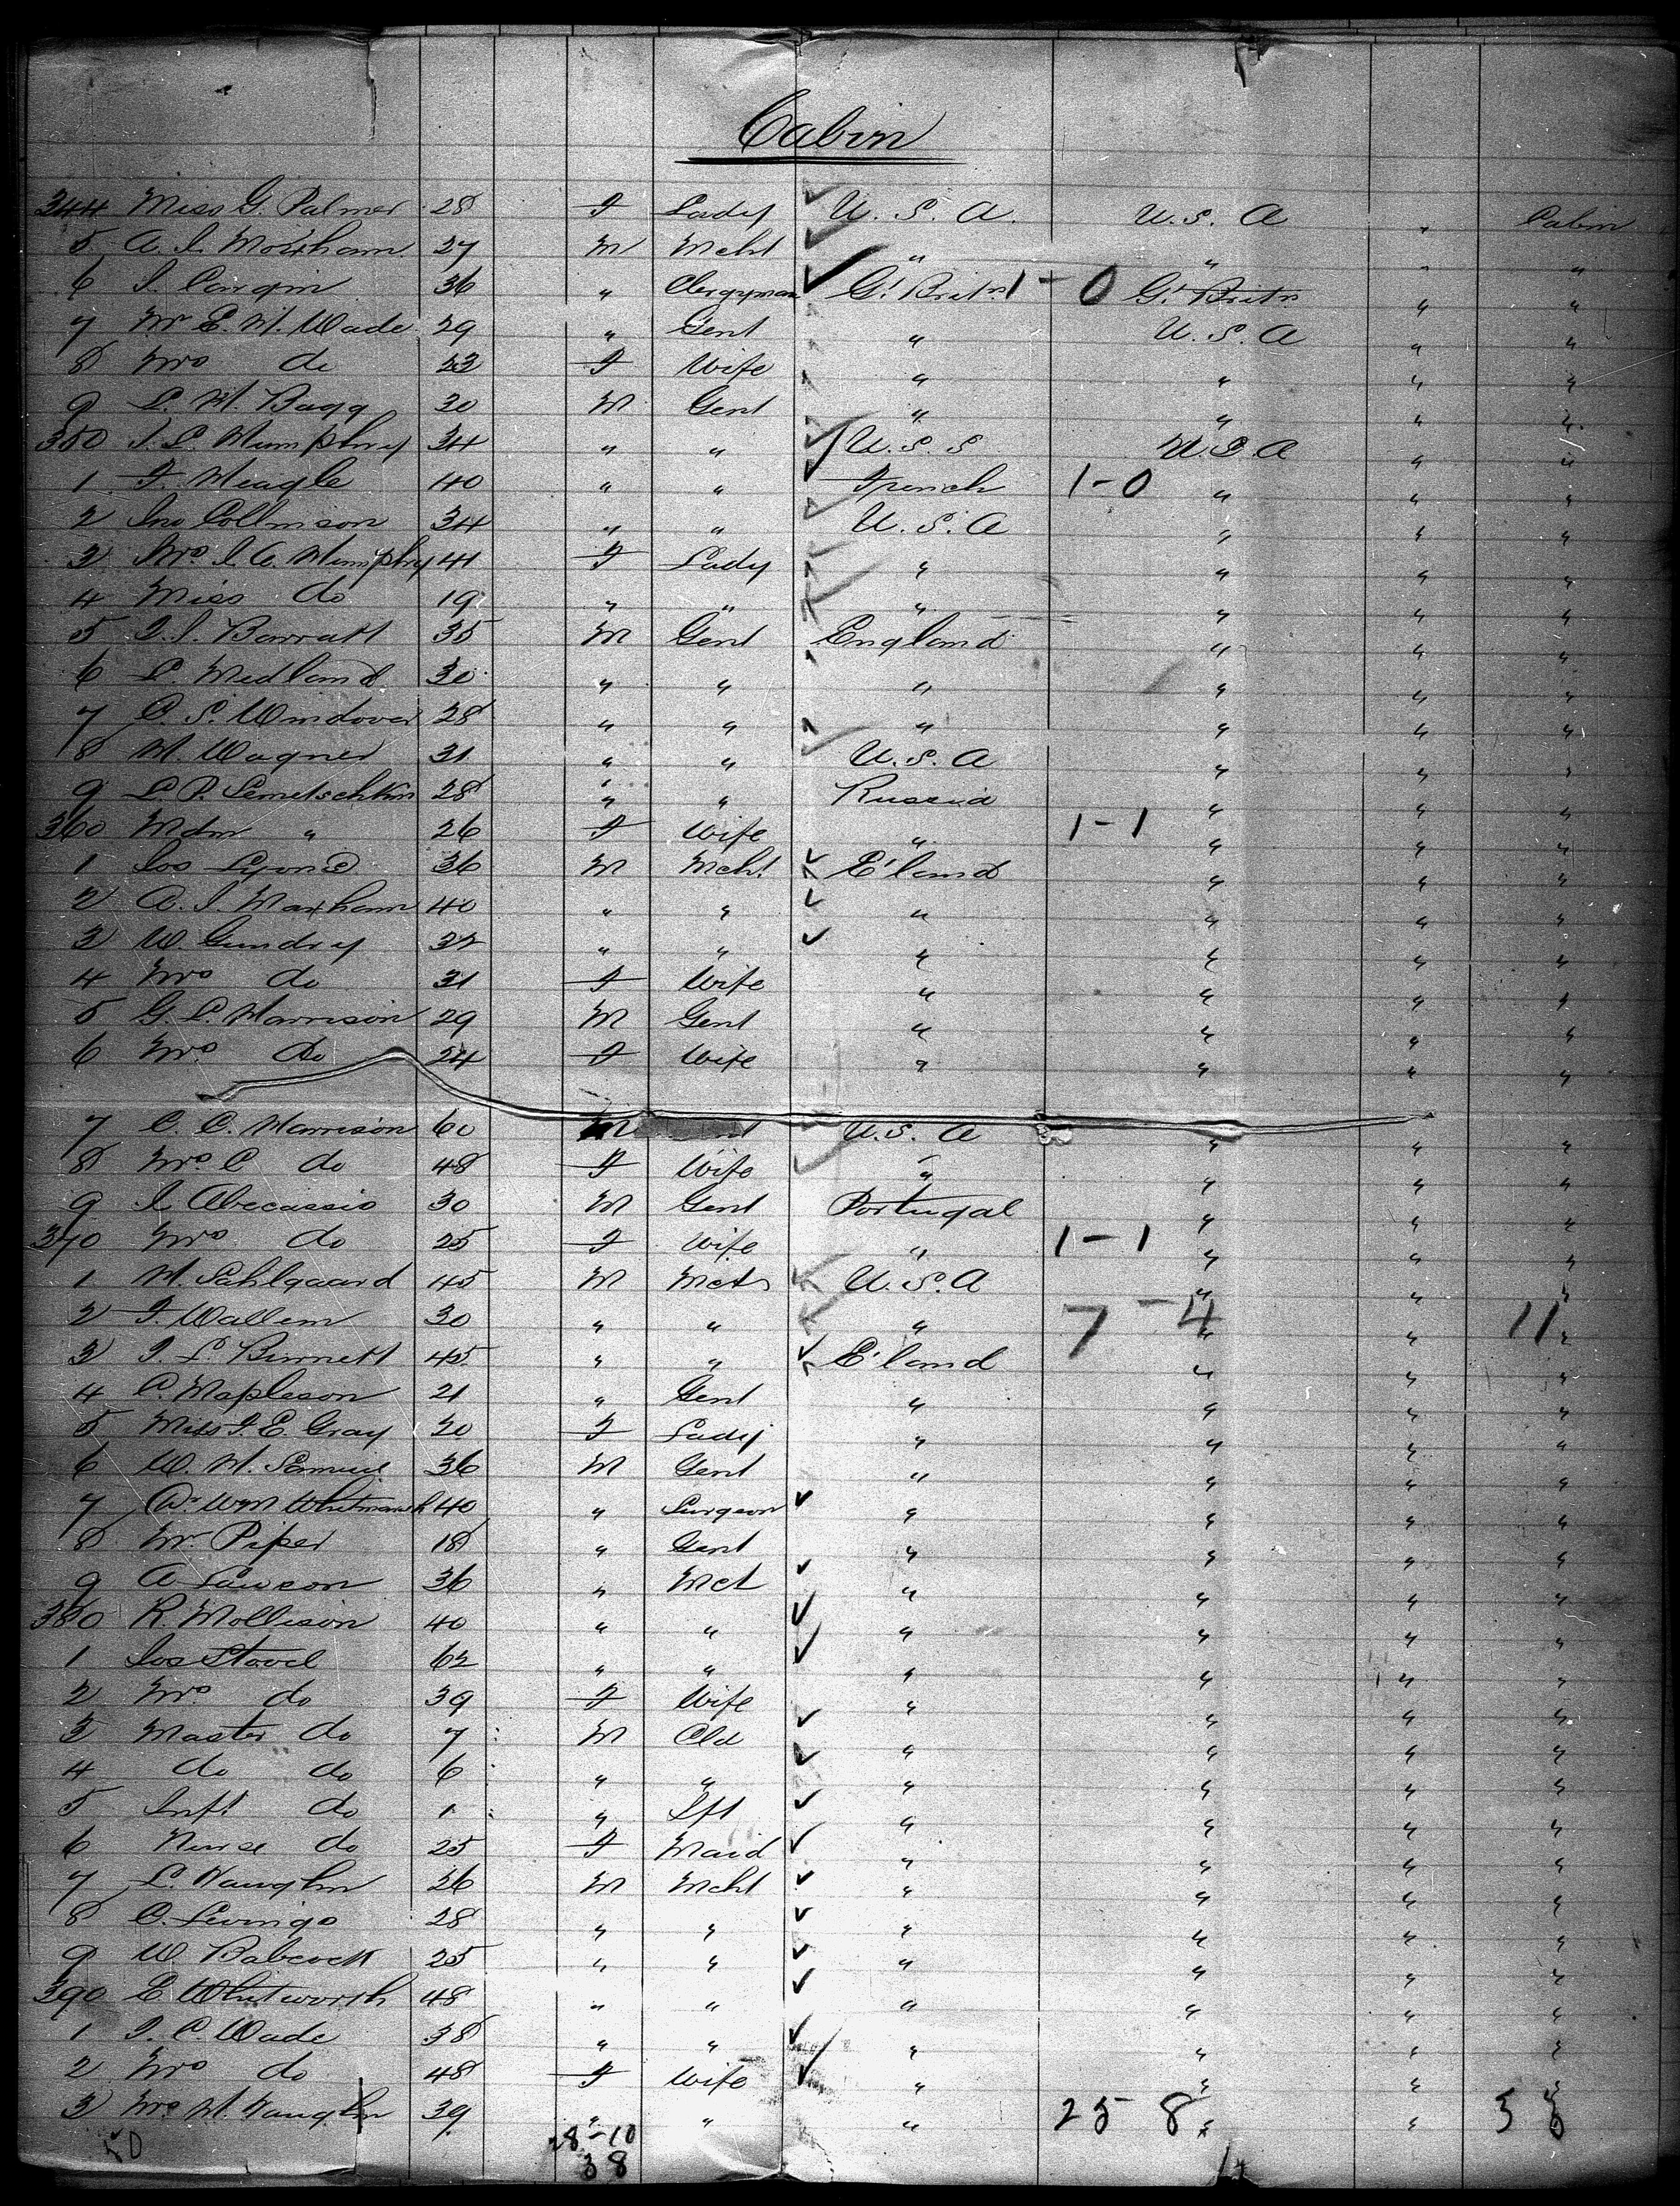 Cabin
344 Miss G. Palmer 28 F Lady U. S. A. U. S. A " Cabin
5 A. J. Moxham 27 M Mcht " " " "
6 36 " Clergyman Gt Britn 1-0 Gt Britn " "
7 Mr E. H. Wade 29 " Gent " U. S. A " "
8 Mrs do 23 F Wife " " " "
9 L. H. Bagg 30 M Gent " " " "
350 J. L. Humphrey 34 " " U. S. S U S A " "
1 F. Heagle 40 " " French 1-0 " " "
2 Jno Collinson 34 " " U. S. A " " "
3 Mrs J. A. Humphrey 41 F Lady " " " "
4 Miss do 19 " " " " " "
5 J. J. Barratt 35 M Gent England " " "
6 L. Medland 30 " " " " " "
7 C. S. Windover 28 " " " " " "
8 H. Wagner 31 " " U. S. A " " "
9 L. P. 28 " " Russia " " "
360 Mdm " 26 F Wife " 1-1 " " "
1 Jos Lyons 36 M Mcht E'land " " "
2 A. J. Maxham 40 " " " " " "
3 W. Gundry 32 " " " " " "
4 Mrs do 31 F Wife " " " "
5 G. L. Harrison 29 M Gent " " " "
6 Mrs do 24 F Wife " " " "
7 C. C. Harrison 60 M U. S. A " " "
8 Mrs C do 48 F Wife " " " "
9 J Abecassis 30 M Gent Portugal " " "
370 Mrs do 25 F Wife " 1-1 " " "
1 H. Dahlgaard 45 M Mcts U. S. A " " "
2 F. Wallem 30 " " " 7-4 " " 11 "
3 J. L. Burnett 45 " " E'land " " "
4 C. Mapleson 21 " Gent " " " "
5 Miss F. E. Gray 20 F Lady " " " "
6 W. H. Samuel 36 M Gent " " " "
7 Dr Wm Whitmarsh 40 " Surgeon " " " "
8 Mr Piper 18 " Gent " " " "
9 A Lawson 36 " Mct " " " "
380 R. Mollison 40 " " " " " "
1 Jos Stovel 62 " " " " " "
2 Mrs do 39 F Wife " " " "
3 Master do 7 M Cld " " " "
4 do do 6 " " " " " "
5 Inft do 1 " Ift " " " "
6 Nurse do 25 F Maid " " " "
7 L. Vaughn 36 M Mcht " " " "
8 C. Livings 28 " " " " " "
9 W Babcock 25 " " " " " "
390 E Whitworth 48 " " " " " "
1 J. C. Wade 38 " " " " " "
2 Mrs do 48 F Wife " " " "
3 Mrs H. Vaughn 39 " " " 25 8 " "
50 28-10
38